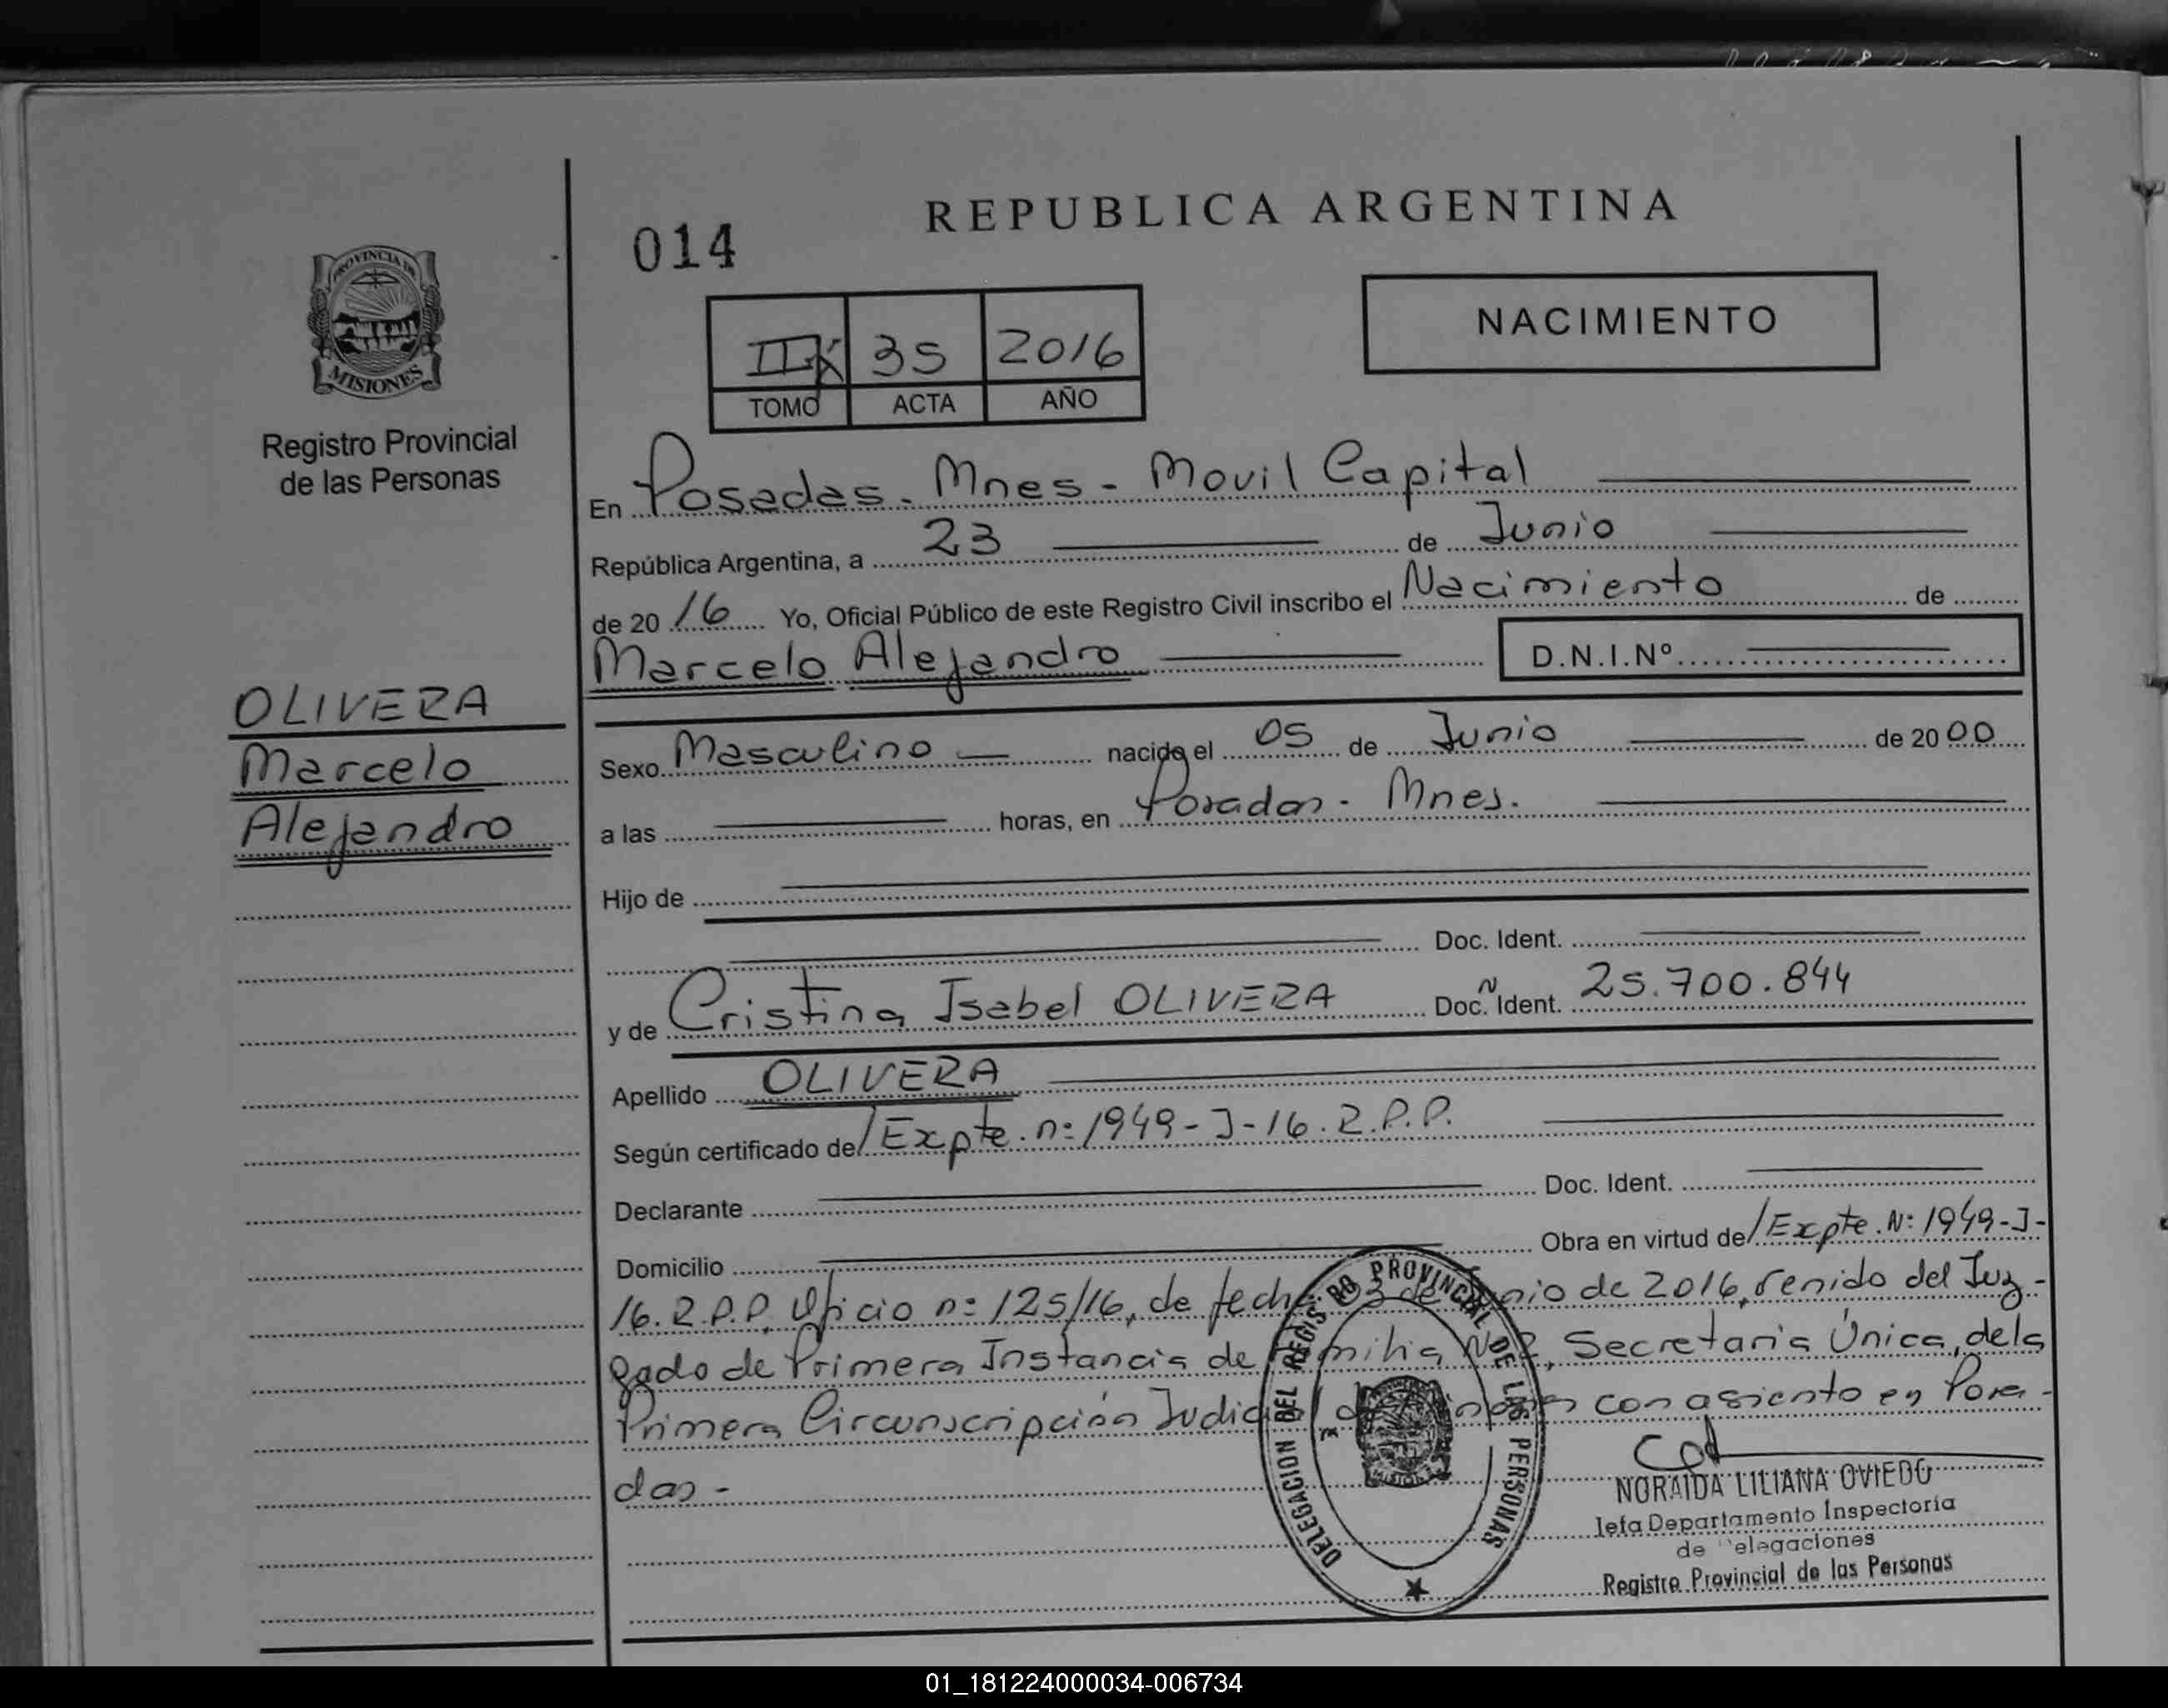 REPUBLICA ARGENTINA
014
NACIMIENTO
35 2016
TOMO ACTA AÑO
PROVINCIA DE
MISIONES
Registro Provincial
de las Personas
En Posadas - Mnes - Movil Capital
República Argentina, a 23 de Junio
de 20 16 Yo, Oficial Público de este Registro Civil inscribo el Nacimiento de
Marcelo Alejandro D.N.I.Nº
OLIVERA
Marcelo
Alejandro
Sexo Masculino nacido el 05 de Junio de 20 00
a las horas, en Posadas - Mnes.
Hijo de
Doc. Ident.
y de Cristina Isabel OLIVERA Doc. N Ident. 25.700.844
Apellido OLIVERA
Según certificado de/ Expte. n: 1949-J-16. R.P.P.
Declarante Doc. Ident.
Domicilio Obra en virtud de/ Expte. N: 1949-J-
16. R.P.P. Oficio n: 125/16, de fecha 03 de de 2016, venido del Juz-
gado de Primera Instancia de Familia Nº 2, Secretaria Única, de la
Primera Circunscripción Judicial de Misiones con asiento en Posa-
das -
DELEGACION DEL REGISTRO PROVINCIAL DE LAS PERSONAS
MISIONES
NORAIDA LILIANA OVIEDO
Jefa Departamento Inspectoría
de elegaciones
Registro Provincial de las Personas
01_181224000034-006734